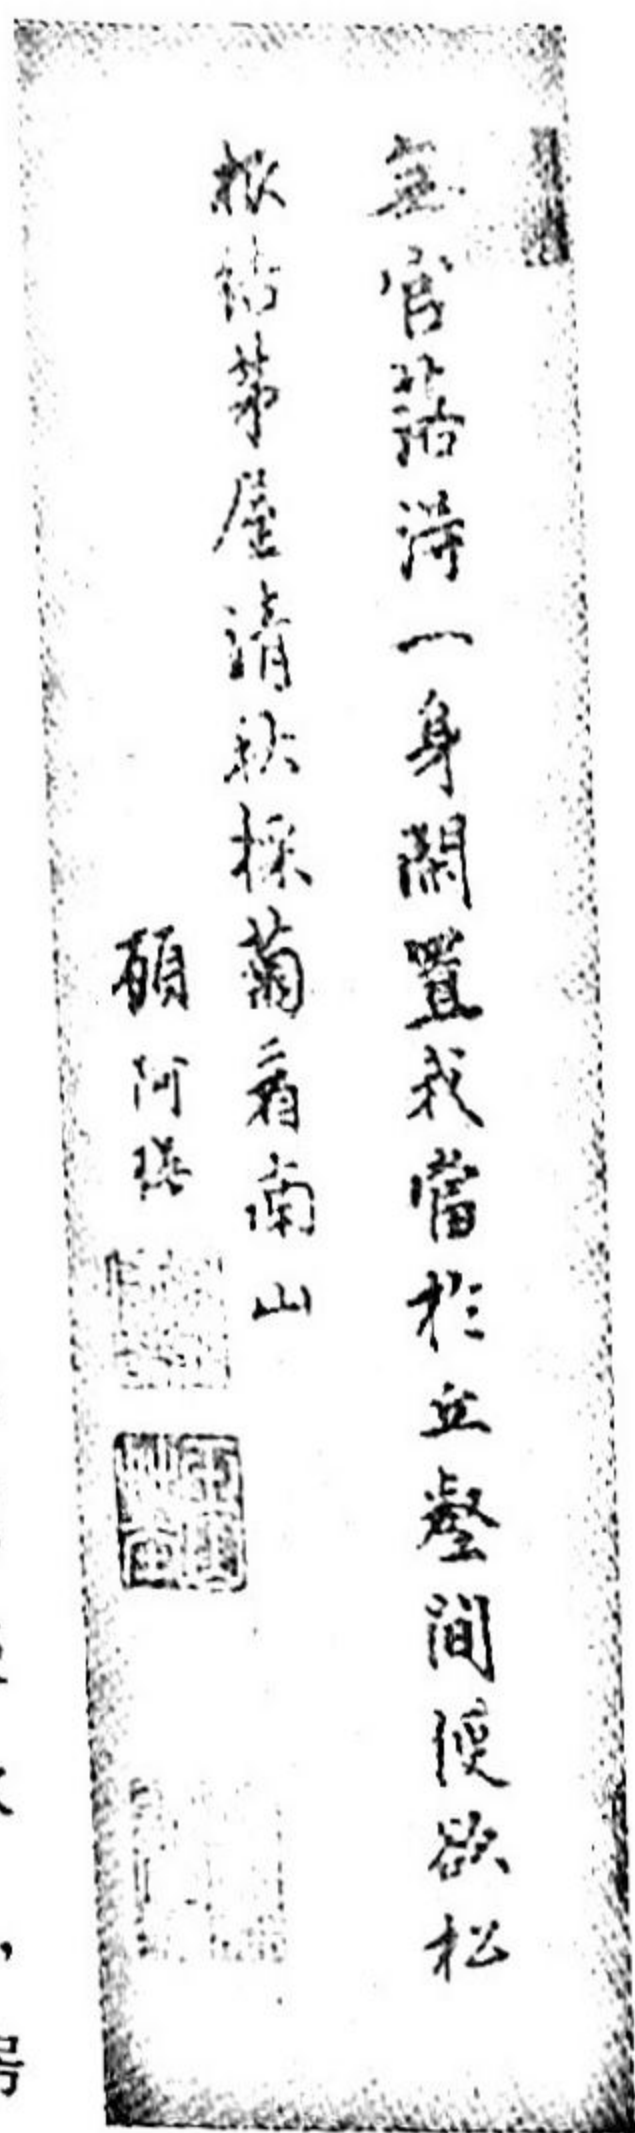 無官落得一身閒置我當於丘壑間便欲松
根結茅屋清秋採菊看南山
顧阿瑛